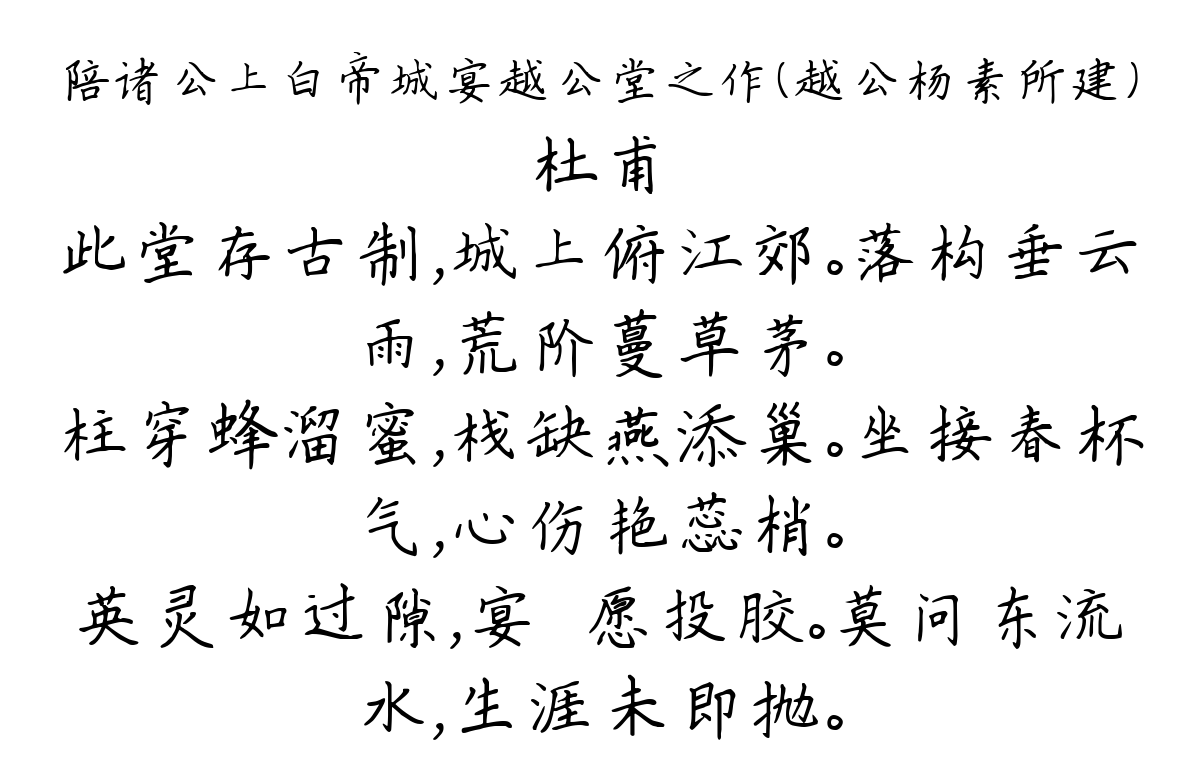 陪诸公上白帝城宴越公堂之作(越公杨素所建)
杜甫
此堂存古制,城上俯江郊。落构垂云
雨,荒阶蔓草茅。
柱穿蜂溜蜜,栈缺燕添巢。坐接春杯
气,心伤艳蕊梢。
英灵如过隙,宴 愿投胶。莫问东流
水,生涯未即抛。